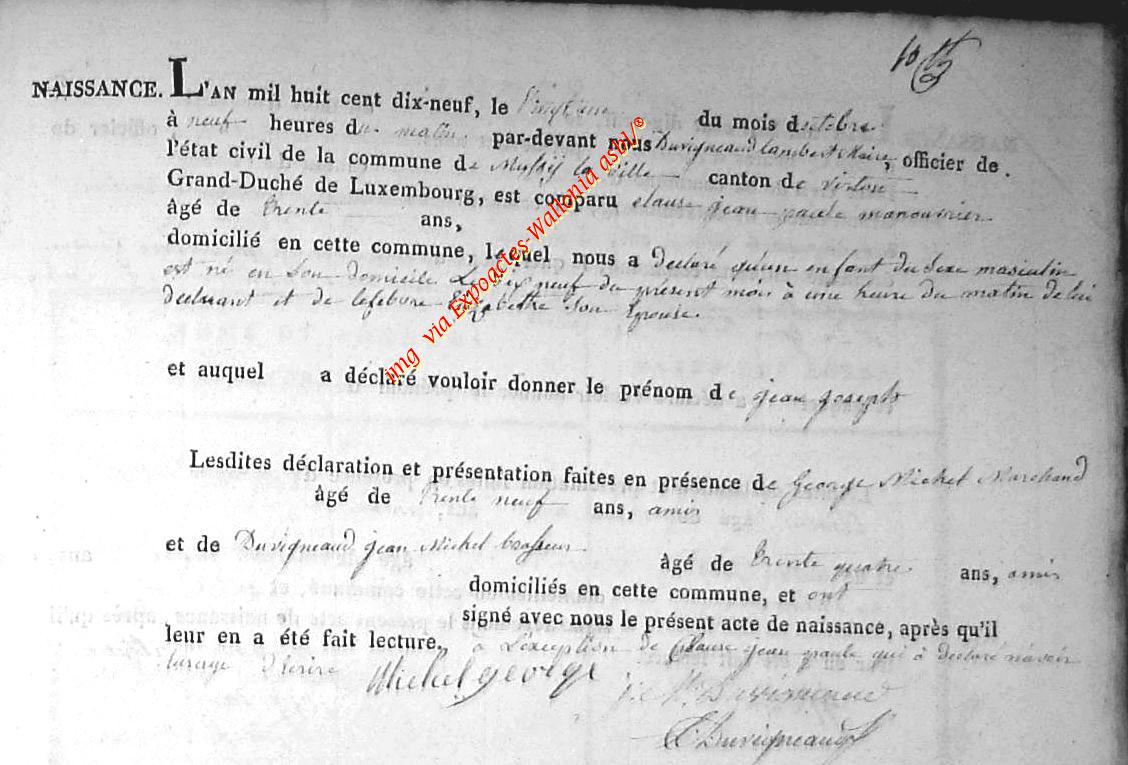 NAISSANCE. L'AN mil huit cent dix-neuf, le vingtieme du mois d'octobre
à neuf heures du matin par-devant nous Duvigneaud Lambert Maire, officier de
l'état civil de la commune de Mussy la Ville canton de virton
Grand-Duché de Luxembourg, est comparu clause jean paule manouvrier
âgé de trente ans,
domicilié en cette commune, lequel nous a declaré qu'un enfant du sexe masculin
est né en son domicile Le dix neuf du présent mois à une heure du matin de lui
declarant et de lefebvre Elizabethe son Epouse.
et auquel a déclaré vouloir donner le prénom de jean joseph
Lesdites déclaration et présentation faites en présence de George Michel Marchand
âgé de trente neuf ans, amis
et de Duvigneaud jean Michel brasseur âgé de trente quatre ans, amis
domiciliés en cette commune, et ont
signé avec nous le présent acte de naissance, après qu'il
leur en a été fait lecture, à L'exception de Clause jean paule qui à déclaré n'avoir
l'usage d'écrire
Michel george
Duvigneaud
L Duvigneaud
img via Expoactes-Wallonia asbl/®